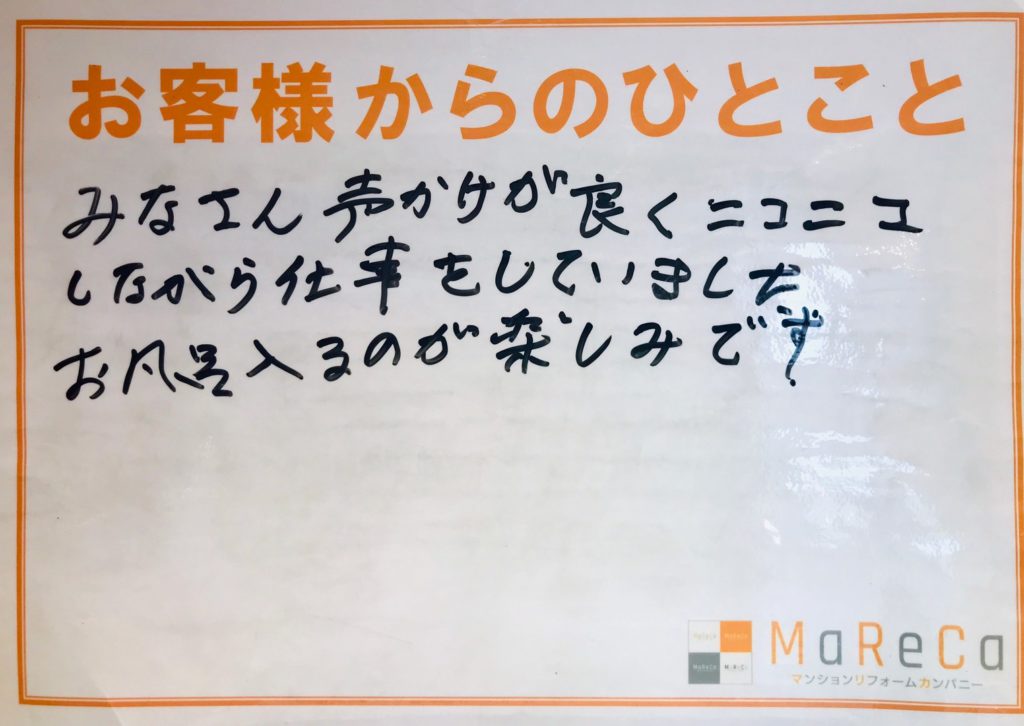 お客様からのひとこと
みなさん声かけが良くニコニコ
しながら仕事をしていました
お風呂入るのが楽しみです
MaReCa
マンションリフォームカンパニー